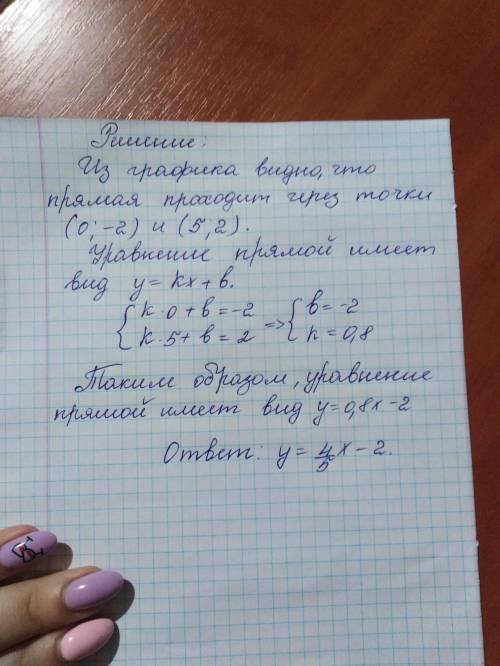 Решение:
Из графика видно, что
прямая проходит через точки
(0; -2) и (5, 2).
Уравнение прямой имеет
вид y = kx + b.
{ k · 0 + b = -2 => { b = -2
{ k · 5 + b = 2 { k = 0,8
Таким образом, уравнение
прямой имеет вид y = 0,8x - 2
Ответ: y = 4/5 x - 2.